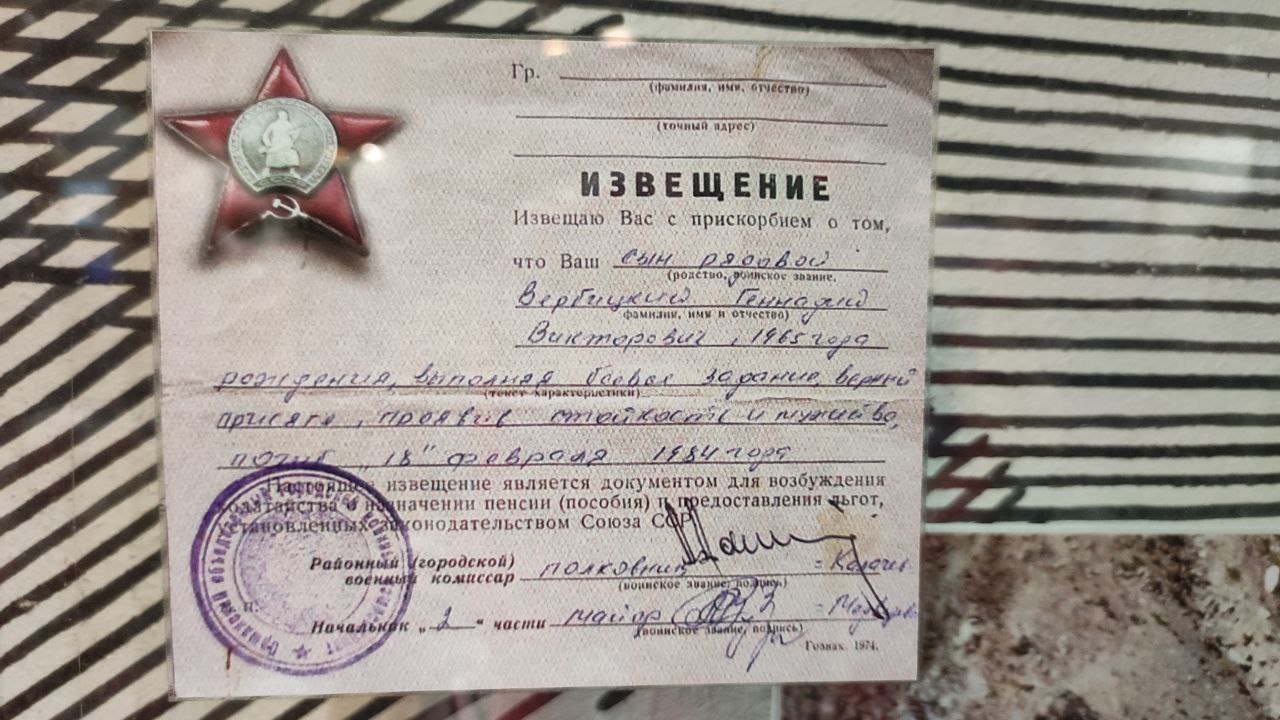 Гр.
(фамилия, имя, отчество)
(точный адрес)
ИЗВЕЩЕНИЕ
Извещаю Вас с прискорбием о том,
что Ваш сын рядовой
(родство, воинское звание,
Вербицкий Геннадий
фамилия, имя и отчество)
Викторович, 1965 года
рождения, выполняя боевое задание, верный
(текст характеристики)
присяге, проявив стойкость и мужество,
погиб „18" февраля 1984 года
Настоящее извещение является документом для возбуждения
ходатайства о назначении пенсии (пособия) и предоставления льгот,
установленных законодательством Союза ССР
Районный (городской)
военный комиссар полковник
(воинское звание, подпись)
Начальник „2" части майор
(воинское звание, подпись)
Гознак. 1974.